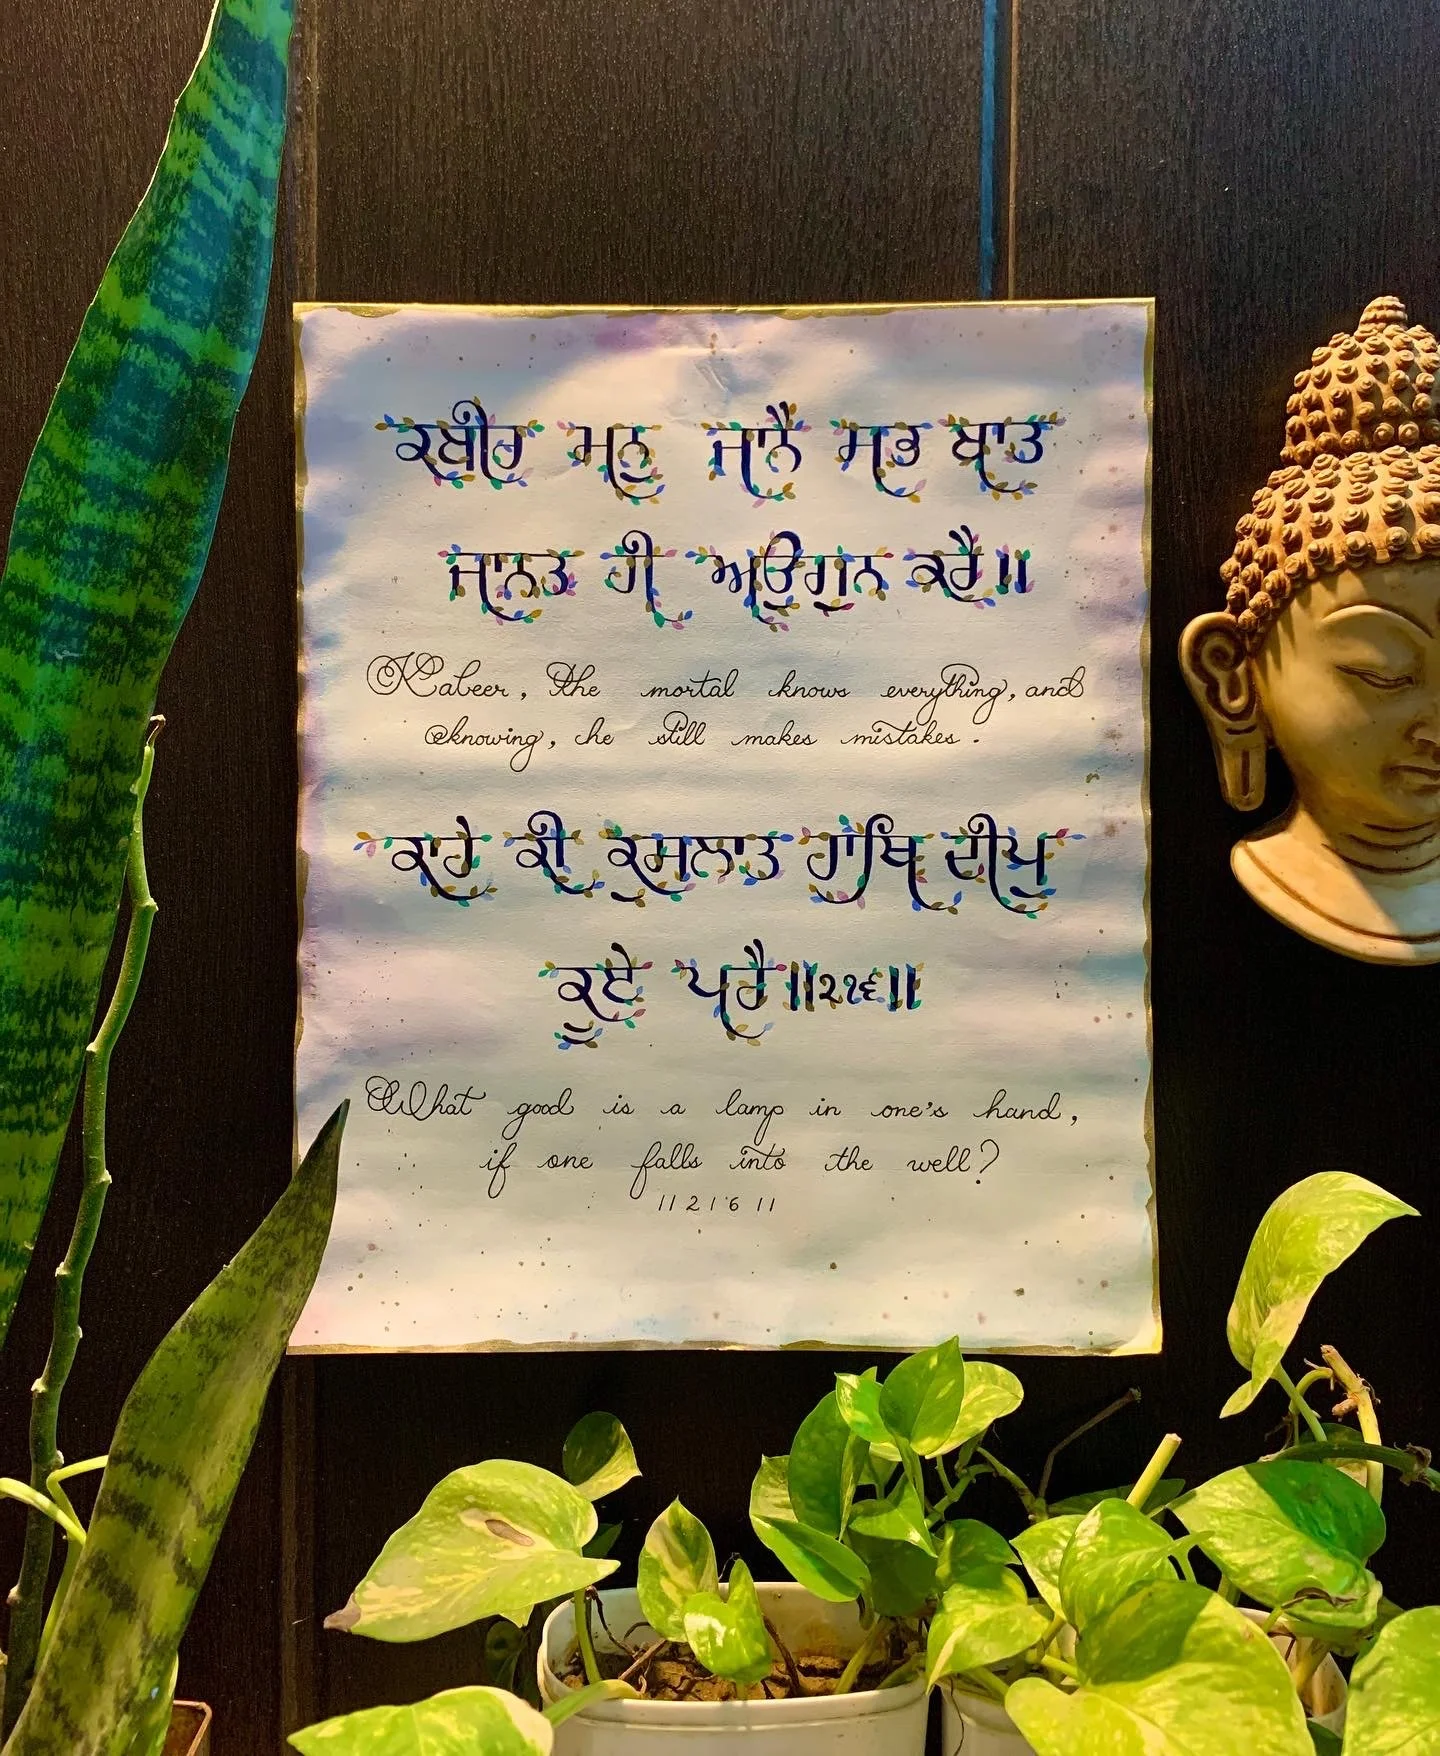 ਕਬੀਰ ਮਨੁ ਜਾਨੈ ਸਭ ਬਾਤ
ਜਾਨਤ ਹੀ ਅਉਗੁਨ ਕਰੈ॥
Kabeer, the mortal knows everything, and
knowing, he still makes mistakes.
ਕਾਹੇ ਕੀ ਕੁਸਲਾਤ ਹਾਥਿ ਦੀਪੁ
ਕੂਏ ਪਰੈ॥੨੧੬॥
What good is a lamp in one's hand,
if one falls into the well?
11 2 1 6 11